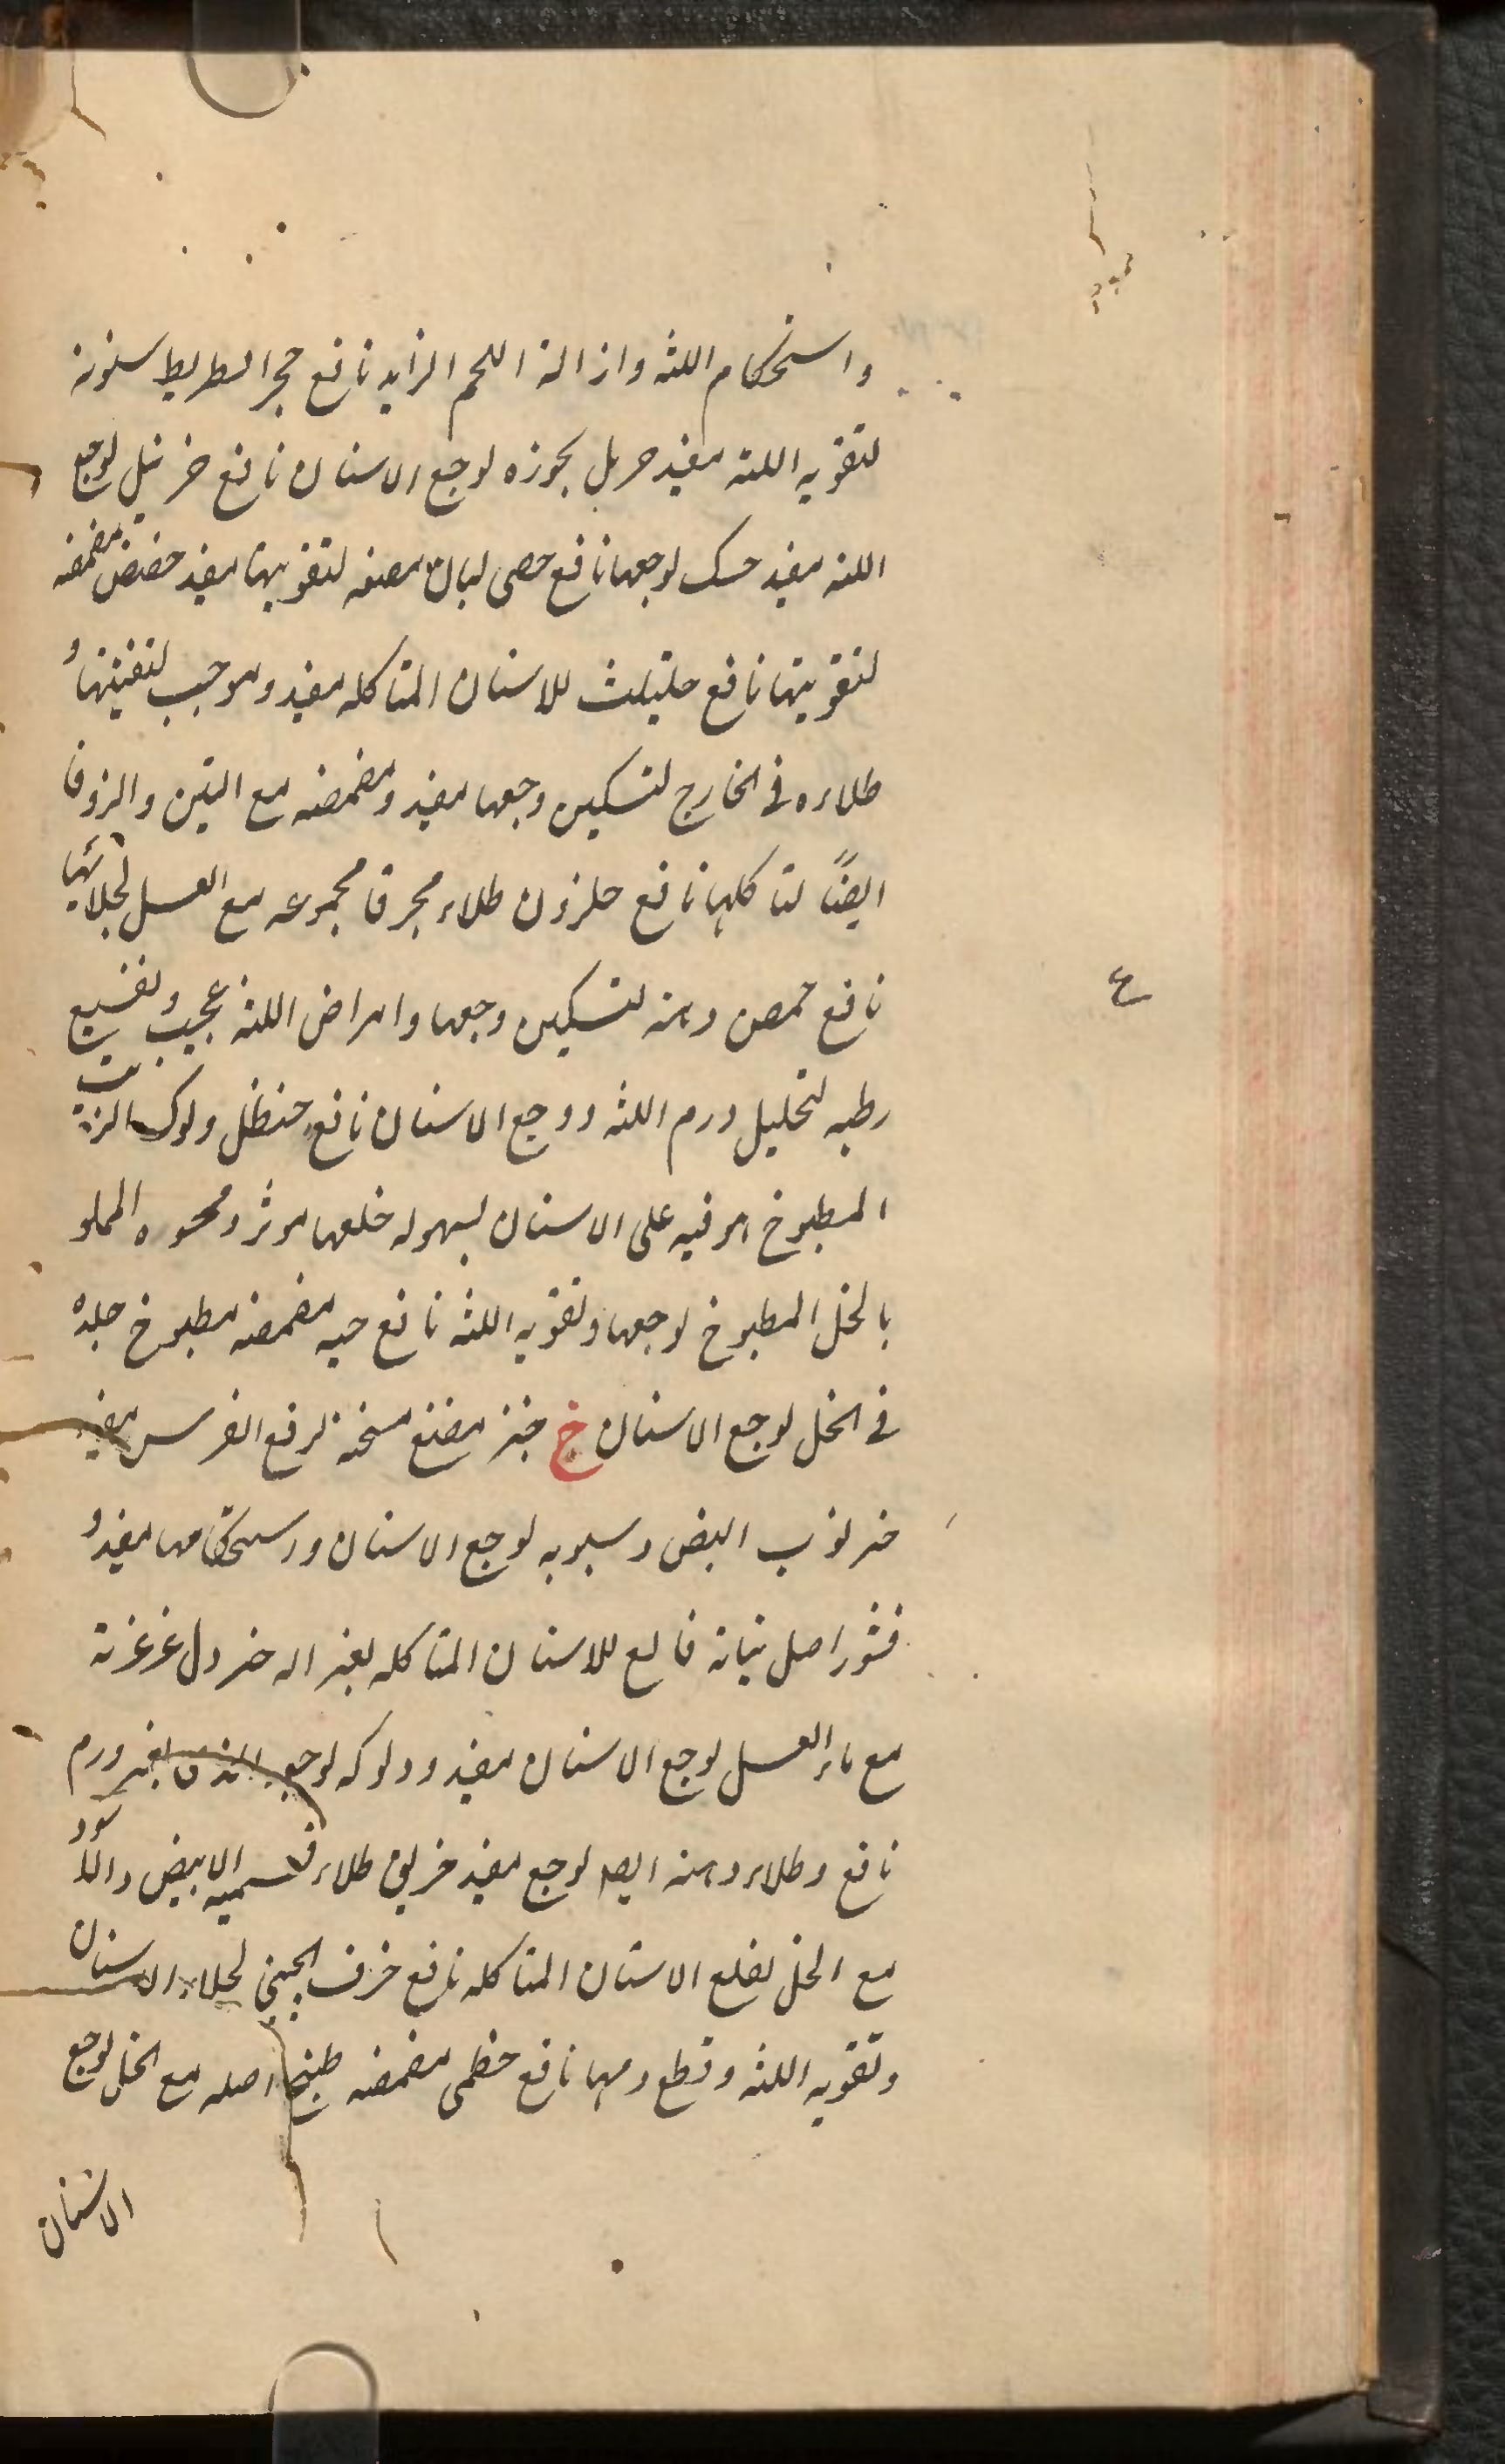 واستحکام اللثه وازالة اللحم الزاید نافع حجر السطریط سنونه
لتقویه اللثه مفید حرمل بخوره لوجع الاسنان نافع خربل لوجع
اللثه مفید حسک لوجعها نافع حصی لبان مضغه لتقویتها مفید حضض مضمضه
لتقویتها نافع حلتیث للاسنان المتاکله مفید وموجب لتفتیتها و
طلاءه فی الخارج لتسکین وجعها مفید و مضمضه مع التین والزوفا
ایضًا لتاکلها نافع حلزون طلاء محرقا مجموعه مع العسل لجلائها
نافع حمص دهنه لتسکین وجعها وامراض اللثه عجیب و نقیع
رطبه لتحلیل ورم اللثه ووجع الاسنان نافع حنظل دلوک الزیت
المطبوخ هو فیه علی الاسنان لسهوله خلعها موثر و محشوه المملو
بالخل المطبوخ لوجعها وتقویه اللثه نافع حیه مضمضه مطبوخ جلده
فی الخل لوجع الاسنان خ خبز مضغ مسخنه لرفع الضرس مفید
خرنوب البض و سیوبه لوجع الاسنان واستحکامها مفید و
قشور اصل نباته قالع للاسنان المتاکله بغیر اله خردل غرغرته
مع ماء العسل لوجع الاسنان مفید ودلوکه لوجع بغیر ورم
نافع وطلاء دهنه ایضا لوجع مفید خربق طلاء قسمیه الابیض والاسود
مع الخل لقلع الاسنان المتاکله نافع خزف الچینی لجلاء الاسنان
وتقویه اللثه وقطع دمها نافع خطمی مضمضه طبیخ اصله مع الخل لوجع
الاسنان
ع